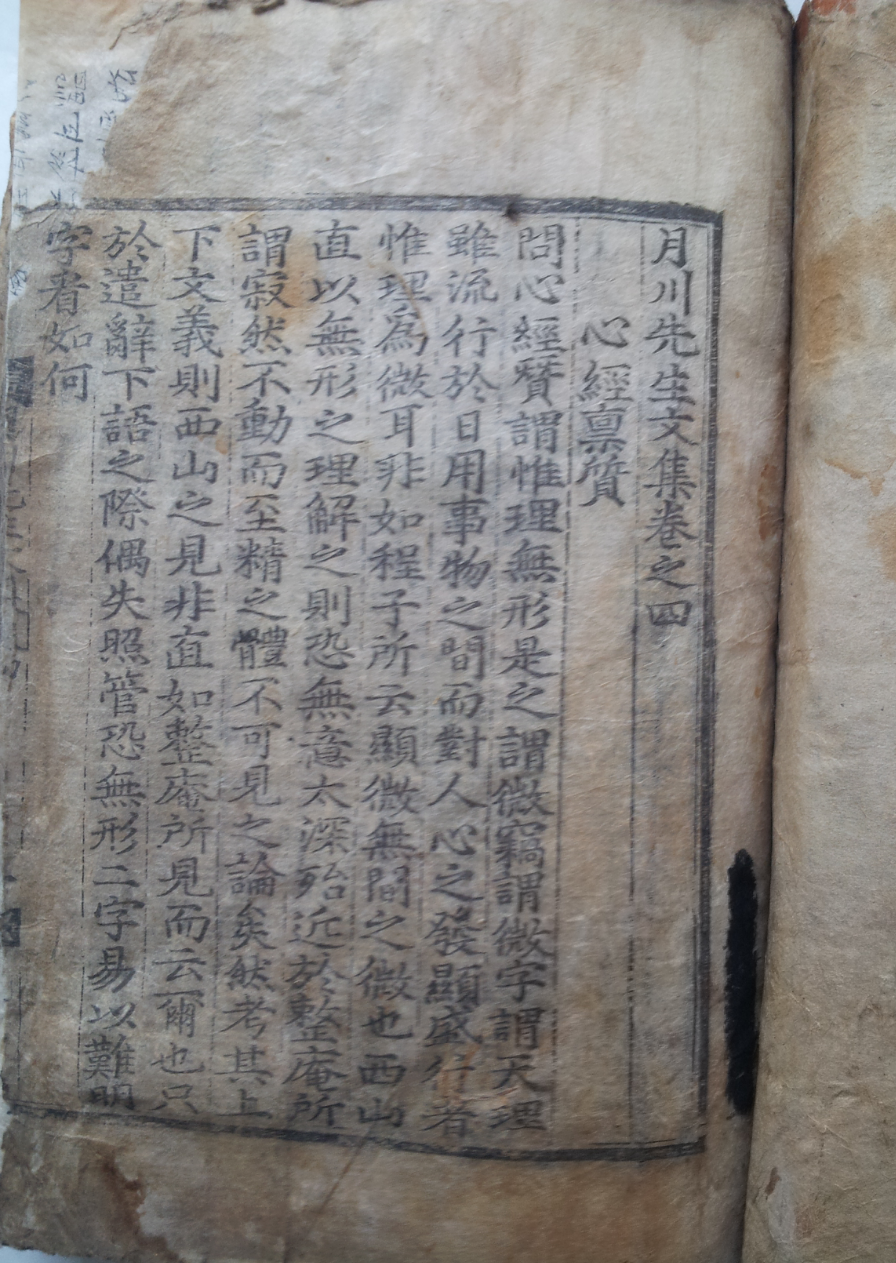 月川先生文集卷之四
心經禀質
問心經贊謂惟理無形是之謂微竊謂微字謂天理
雖流行於日用事物之間而對人心之發顯盛行者
惟理爲微耳非如程子所云顯微無間之微也西山
直以無形之理解之則恐無意太深殆近於整庵所
謂寂然不動而至精之體不可見之論矣然考其上
下文義則西山之見非直如整庵所見而云爾也只
於遣辭下語之際偶失照管恐無形二字易以難明
字看如何